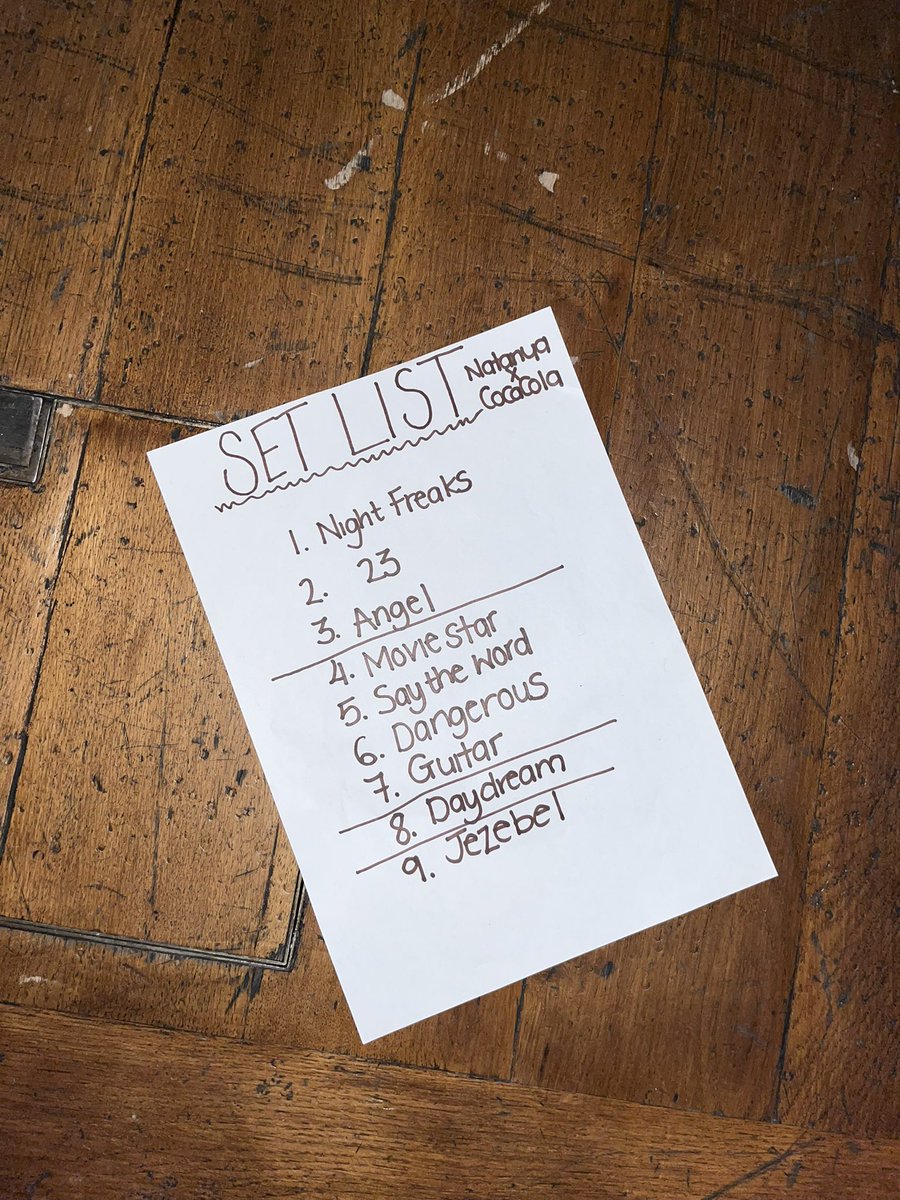 SET LIST
Natanya
x
CocaCola
1. Night Freaks
2. 23
3. Angel
4. Movie Star
5. Say the word
6. Dangerous
7. Guitar
8. Daydream
9. Jezebel